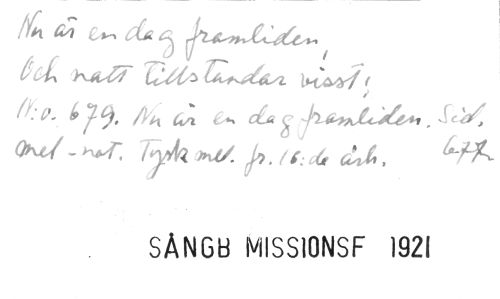 Nu är en dag framliden,
Och natt tillstundar visst;
N:o. 679. Nu är en dag framliden. Sid.
mel-not. Tysk mel. fr. 16:de årh. 677
SÅNGB MISSIONSF 1921